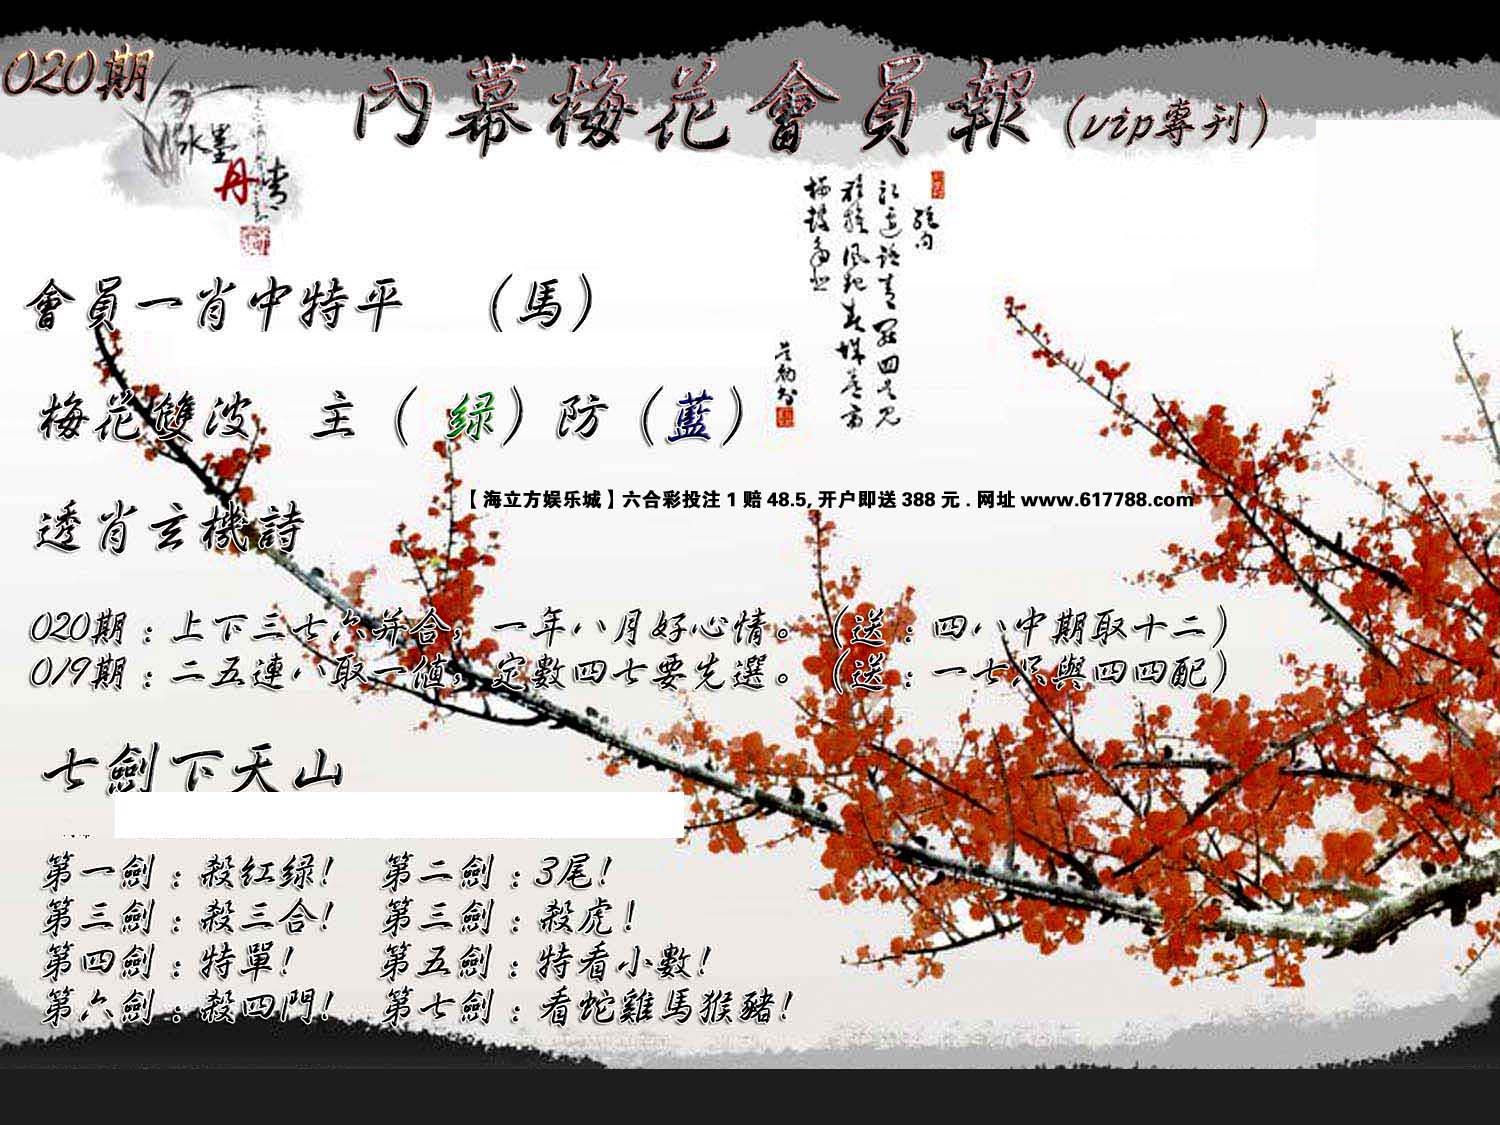 020期
內幕梅花會員報（vip專刊）
水墨
丹青
會員一肖中特平 （馬）
梅花雙波 主（绿）防（藍）
【海立方娱乐城】六合彩投注1赔48.5,开户即送388元.网址www.617788.com
透肖玄機詩
020期：上下三七六并合，一年八月好心情。（送：四八中期取十二）
019期：二五連八取一值，定數四七要先選。（送：一七只與四四配）
七劍下天山
第一劍：殺红绿！ 第二劍：3尾！
第三劍：殺三合！ 第三劍：殺虎！
第四劍：特單！ 第五劍：特看小數！
第六劍：殺四門！ 第七劍：看蛇雞馬猴豬！